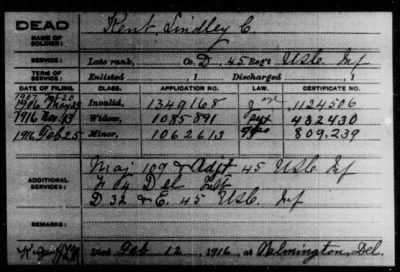 DEAD
NAME OF SOLDIER:
Kent, Lindley C.
SERVICE:
Late rank, Co. D, 45 Reg't U.S.C. Inf
TERM OF SERVICE:
Enlisted , 1 Discharged , 1
DATE OF FILING. CLASS. APPLICATION NO. LAW. CERTIFICATE NO.
1907
Invalid, 1349168 1124506
1916 Nov. 13 Widow, 1085891 482430
Feb 25 Minor, 1062613 809.239
ADDITIONAL SERVICES:
Maj 109 & Adjt 45 U.S.C. Inf
F 64 Del Inf
D 32 & E. 45 U.S.C. Inf
REMARKS:
Died Feb 12, 1916, at Wilmington, Del.